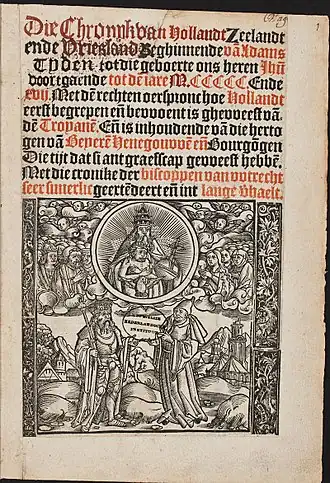 Die Chronyke van Hollandt Zeelandt
ende Vrieslant Beghinnende vā Adams
Tyden tot die geboerte ons heren Jhū
voortgaēnde tot dē iare M. CCCCC Ende
xvij. Met dē rechten oerspronc hoe Hollandt
eerst begrepen eñ bewoent is gheweest vā
dē Troyanē. Eñ is inhoudende vā die hertogen
vā Beyerē Henegouwē eñ Bourgōgen
Die tijt dat si ant graefscap geweest hebbē
Met die cronike der biscoppen van wtrecht
seer suuerlic geextēdeert eñ int lange vhaelt.
NEDERLANDSCH
INSTITUUT